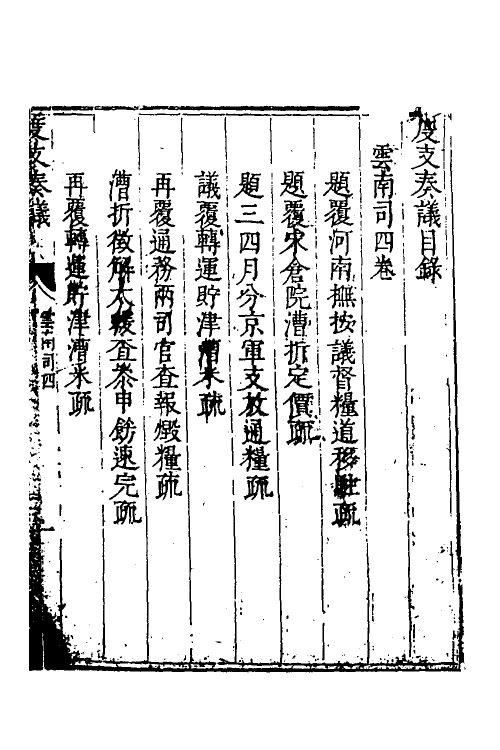 度支奏議目錄
雲南司四卷
題覆河南撫按議督糧道移駐疏
題覆宋倉院漕折定價疏
題三四月分京軍支放通糧疏
議覆轉運貯津漕米疏
再覆通務兩司官查報燬糧疏
漕折徵解太緩查叅申飭速完疏
再覆轉運貯津漕米疏
度支奏議
雲南司四
一